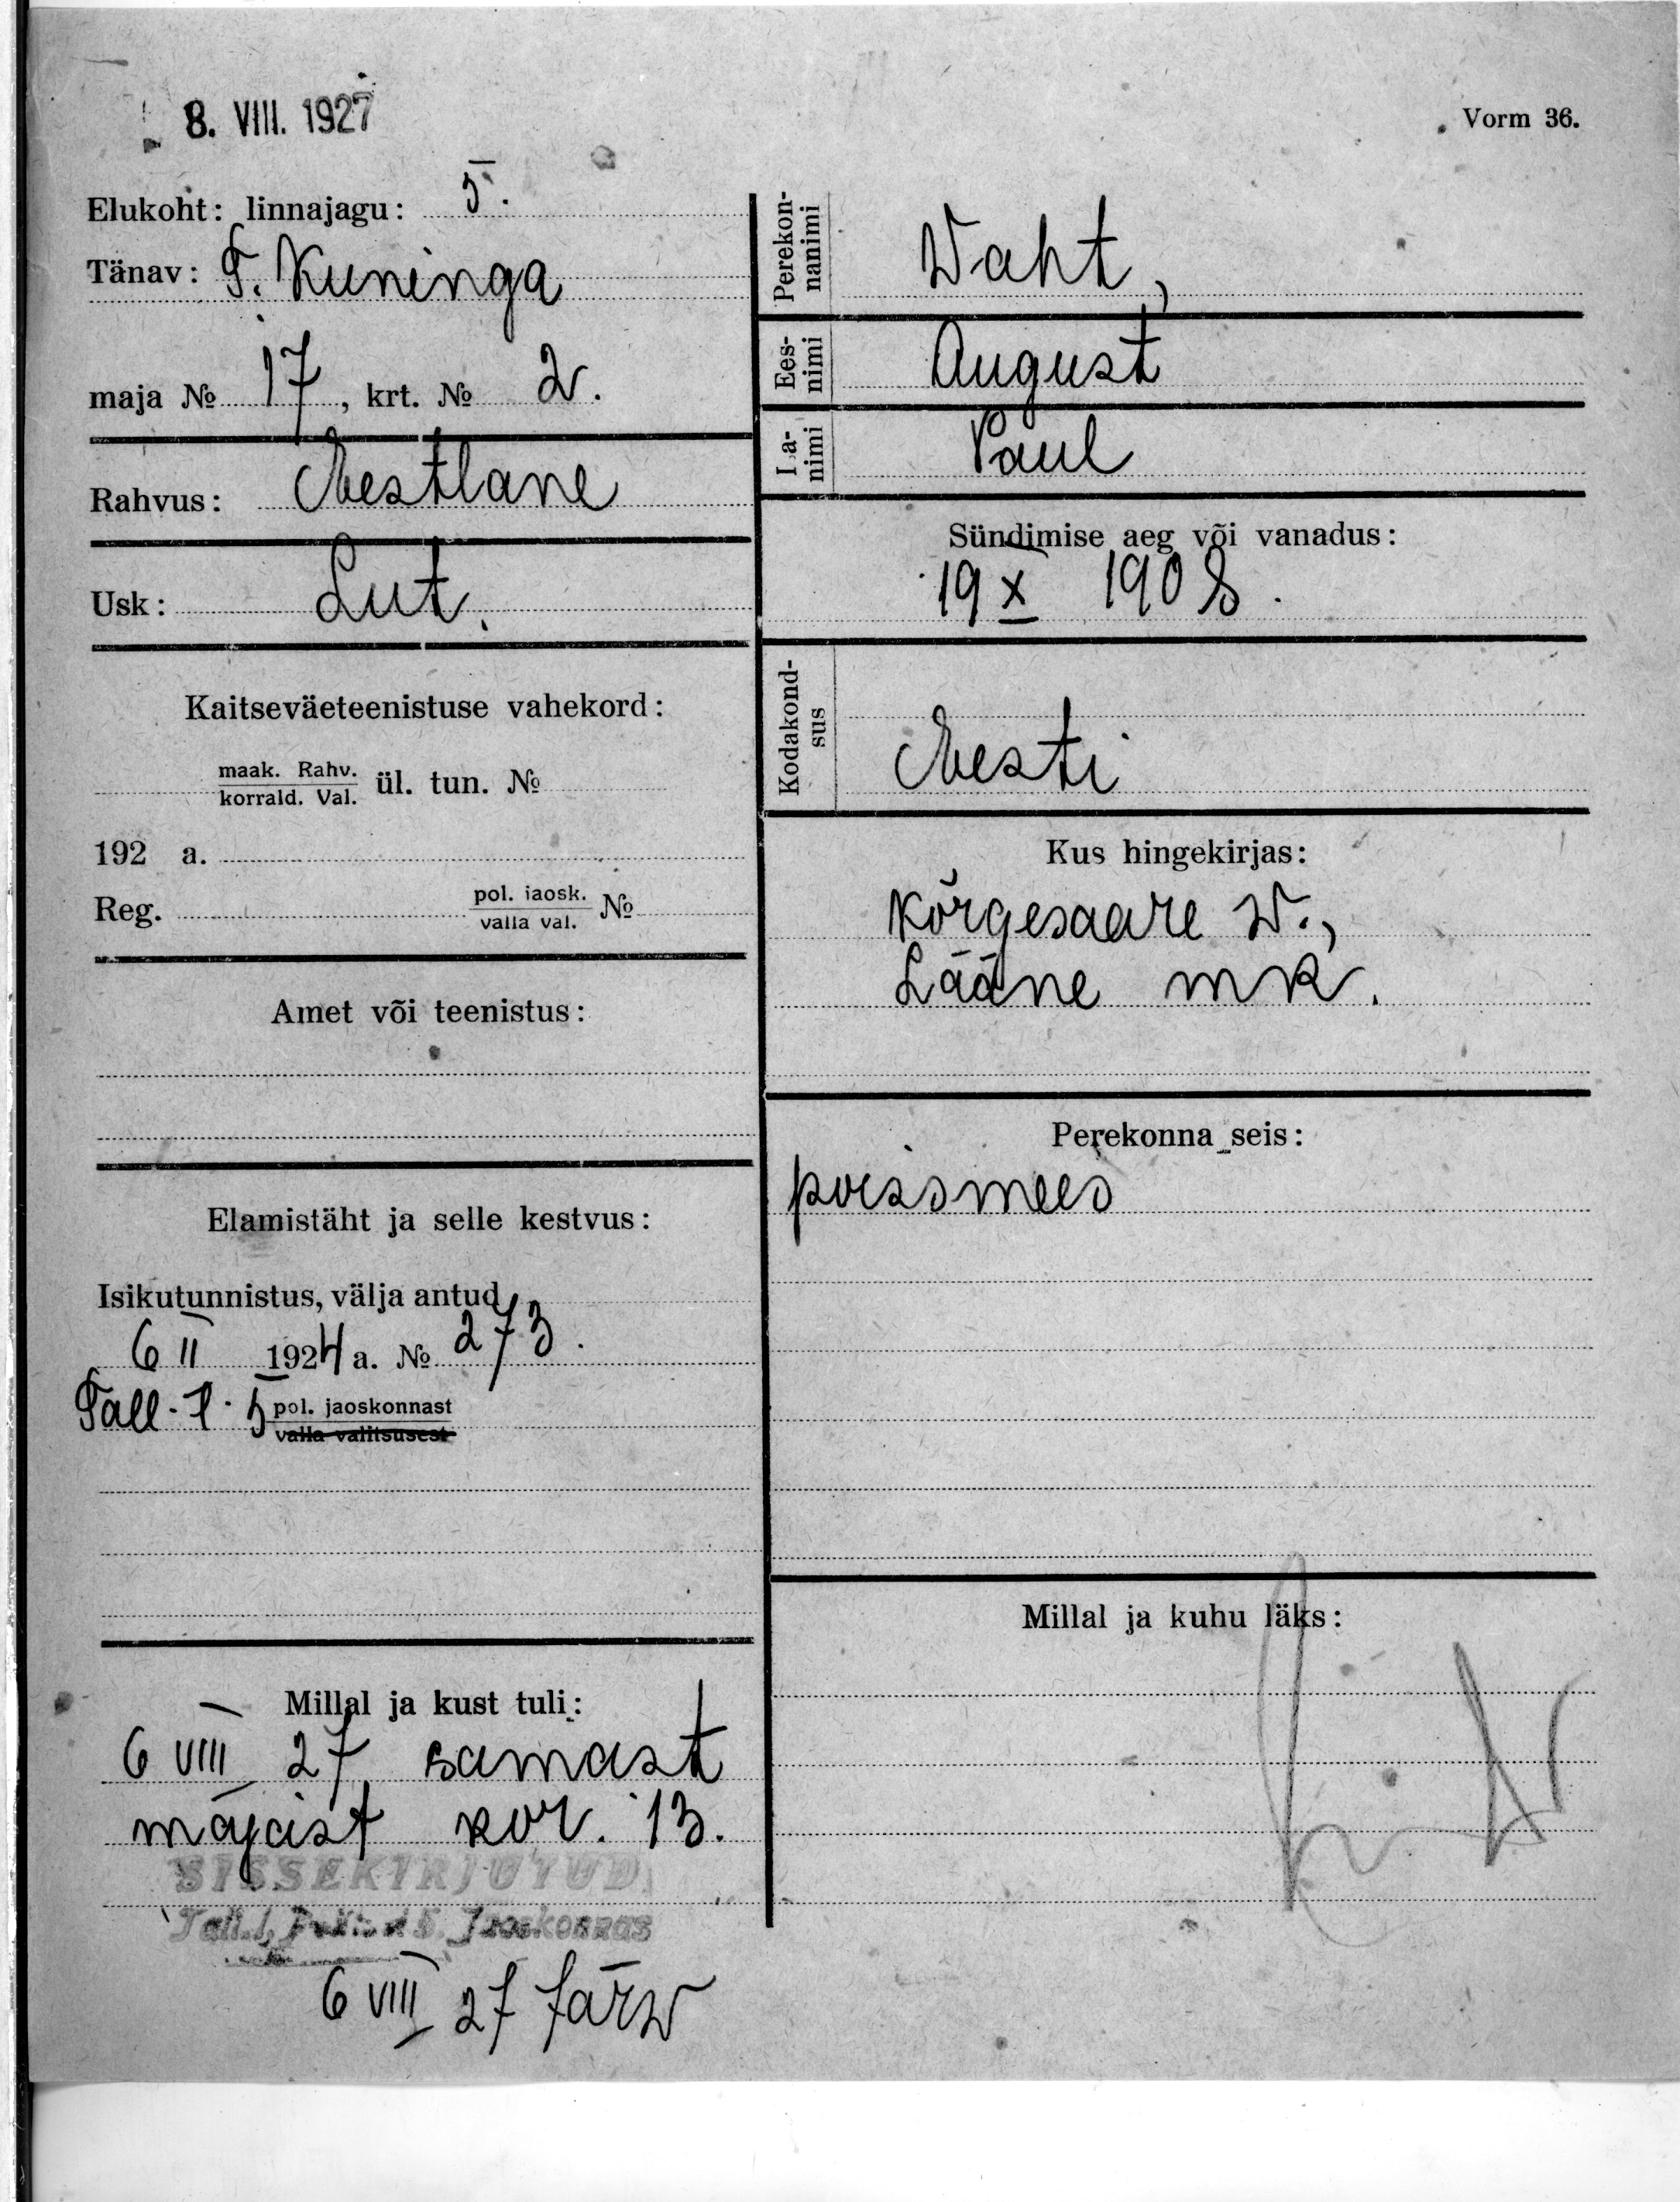 8. VIII. 1927
Vorm 36.
Elukoht: linnajagu: 5.
Tänav: T. Kuninga
maja № 17, krt. № 2.
Rahvus: Eestlane
Usk: Lut.
Kaitseväeteenistuse vahekord:
maak. Rahv.
korrald. Val. ül. tun. №
192 a.
Reg. pol. jaosk.
valla val. №
Amet või teenistus:
Elamistäht ja selle kestvus:
Isikutunnistus, välja antud
6 II 1924 a. № 273.
Tall. l. 5 pol. jaoskonnast
valla valitsusest
Millal ja kust tuli:
6 VIII 27 samast
majast kor. 13.
SISSEKIRJUTUD
Tall. l. 5. Jaoskonnas
6 VIII 27 Järw
Perekon-
nanimi
Waht,
Ees-
nimi
August
Isa-
nimi
Paul
Sündimise aeg või vanadus:
19 X 1908.
Kodakond-
sus
Eesti
Kus hingekirjas:
Kõrgesaare w.,
Lääne mk.
Perekonna seis:
poissmees
Millal ja kuhu läks: